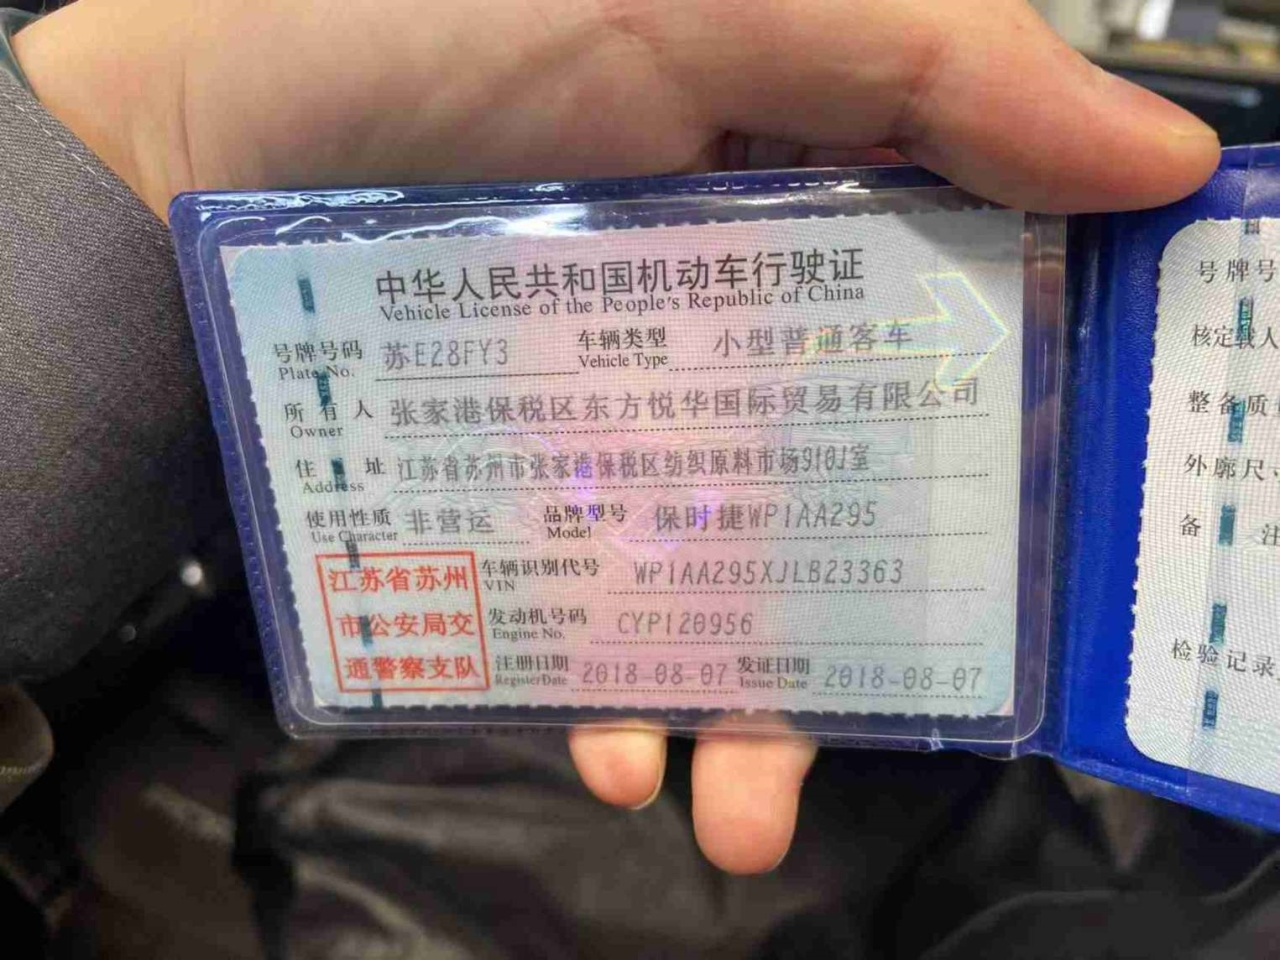 中华人民共和国机动车行驶证
Vehicle License of the People's Republic of China
号牌号码 苏E28FY3 车辆类型 小型普通客车
Plate No. Vehicle Type
所有人 张家港保税区东方悦华国际贸易有限公司
Owner
住址 江苏省苏州市张家港保税区纺织原料市场9101室
Address
使用性质 非营运 品牌型号 保时捷WP1AA295
Use Character Model
江苏省苏州
市公安局交
通警察支队
车辆识别代号 WP1AA295XJLB23363
VIN
发动机号码 CYP120956
Engine No.
注册日期 2018-08-07 发证日期 2018-08-07
Register Date Issue Date
号牌号
核定载人
整备质
外廓尺
备 注
检验记录